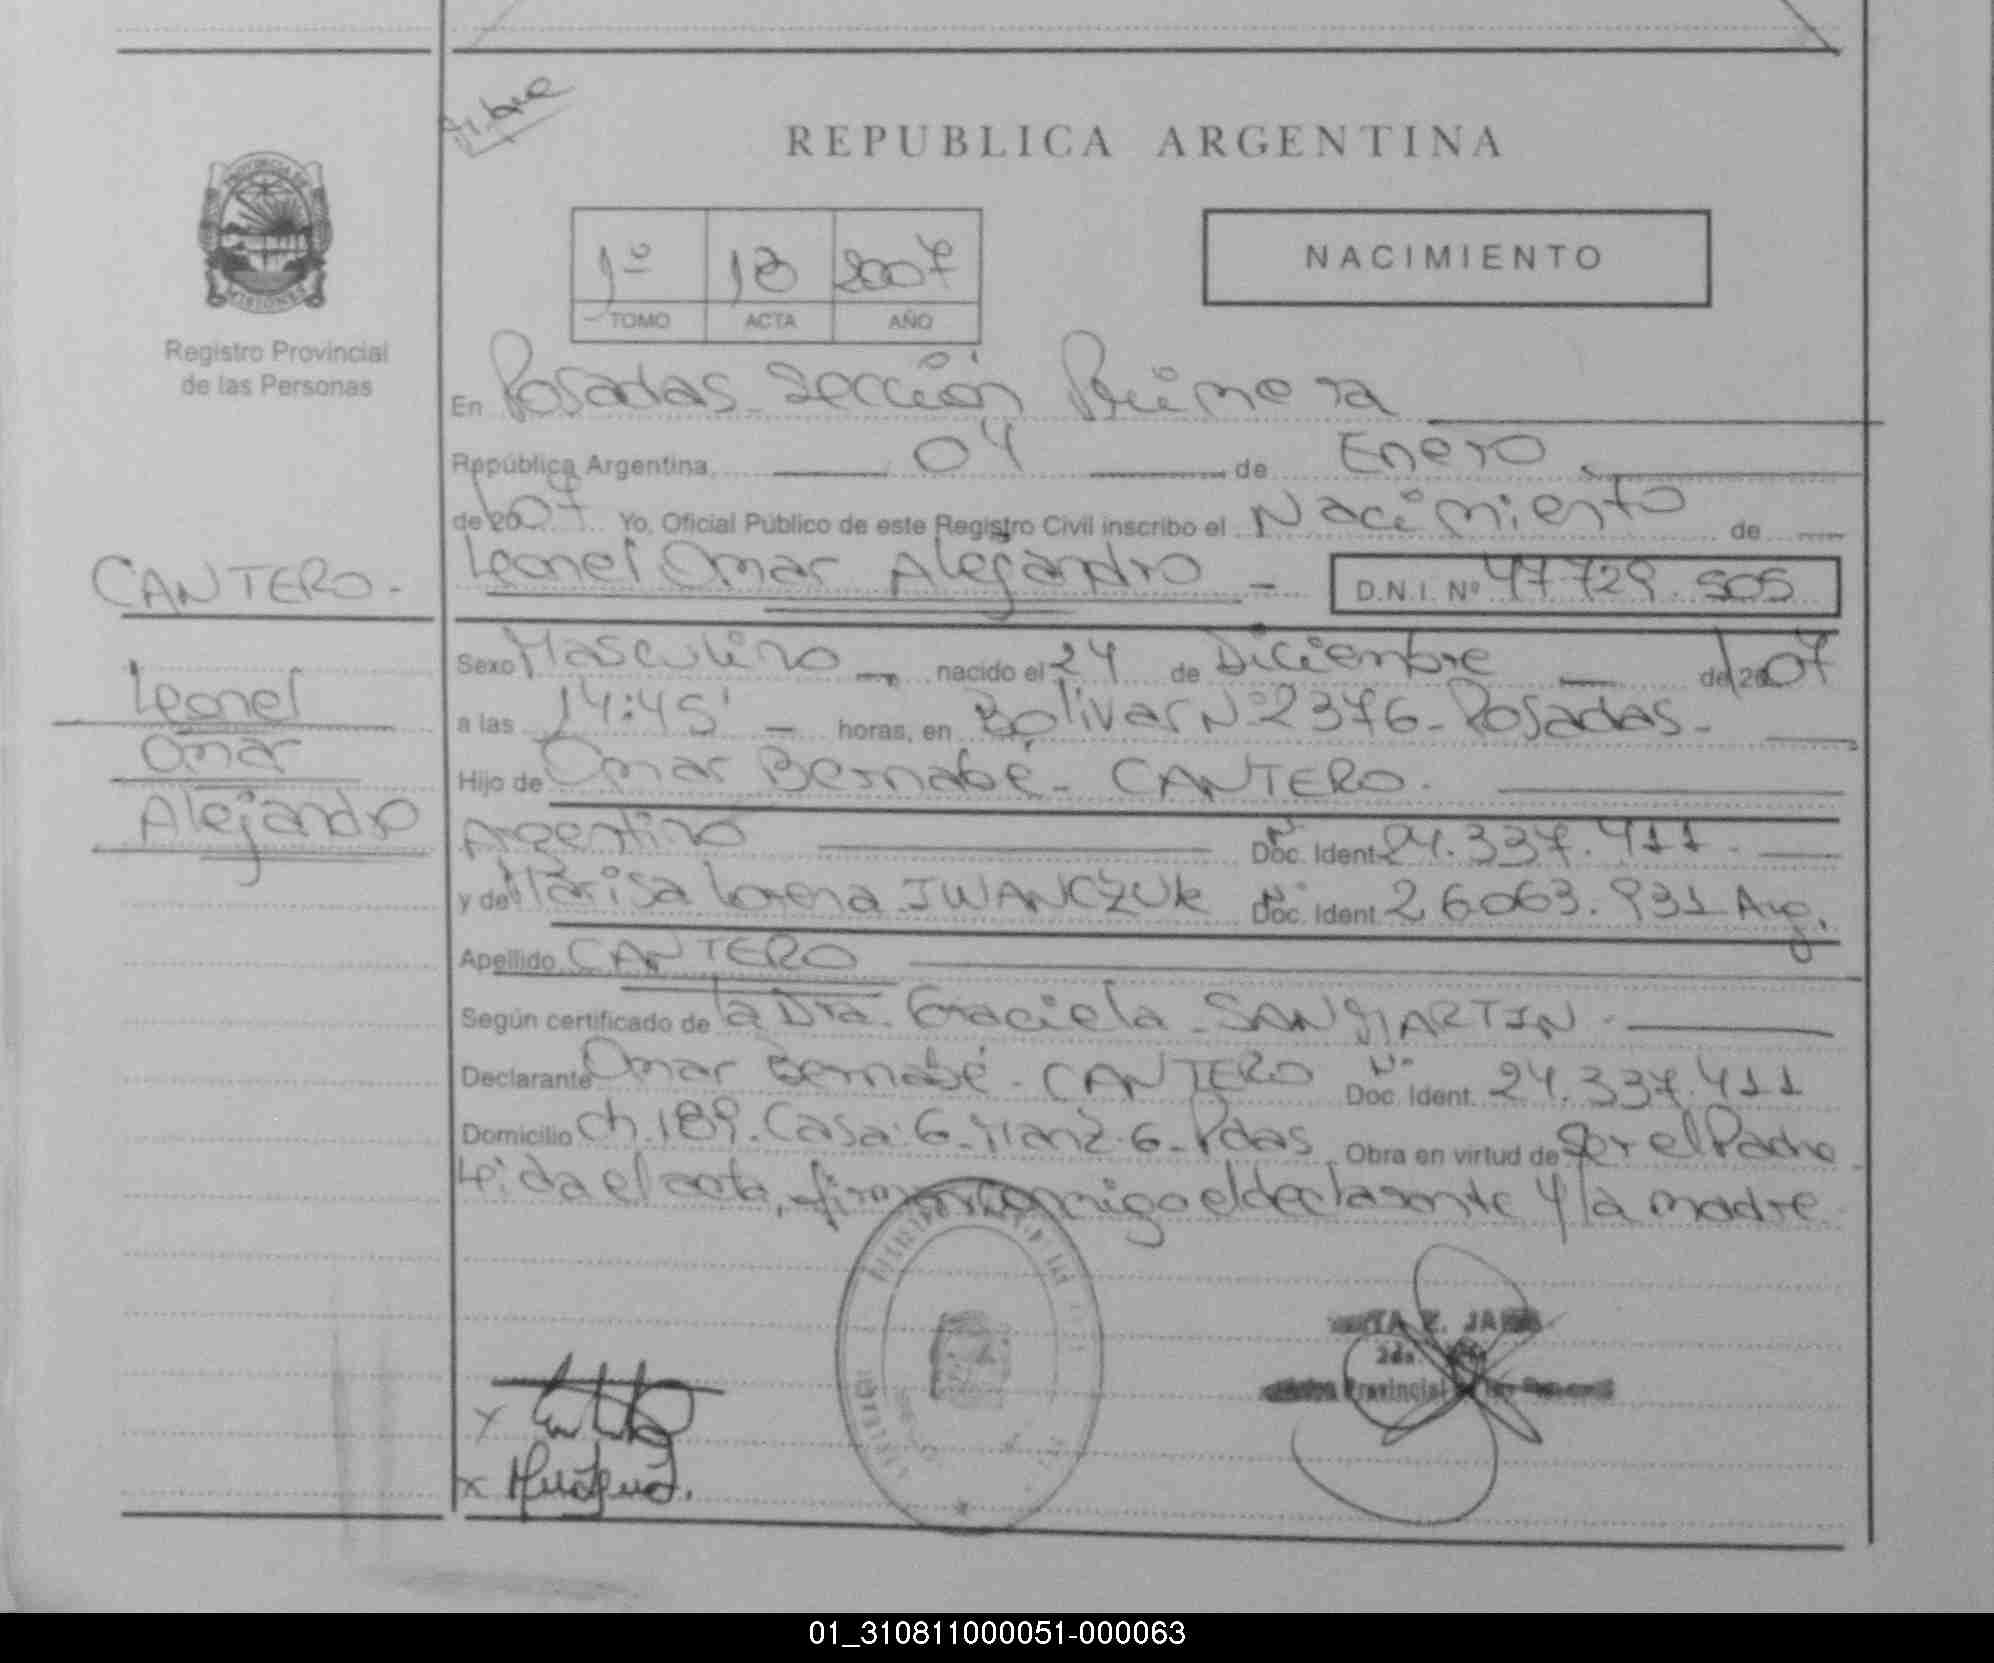 Libre
REPUBLICA ARGENTINA
PROVINCIA DE
MISIONES
Registro Provincial
de las Personas
1º 18 2007
TOMO ACTA AÑO
NACIMIENTO
En Posadas Sección Primera
República Argentina, 04 de Enero
de 2007 Yo, Oficial Público de este Registro Civil inscribo el Nacimiento de
CANTERO.-
Leonel Omar Alejandro - D.N.I. Nº 47.729.505
Sexo Masculino nacido el 24 de Diciembre de 2007
Leonel
a las 14:45' - horas, en Bolivar Nº 2376 - Posadas -
Omar
Hijo de Omar Bernabé - CANTERO.
Alejandro
Argentino Nº Doc. Ident. 24.337.411.
y de Marisa Lorena IWANCZUK Nº Doc. Ident. 26063.931 Arg.
Apellido CANTERO
Según certificado de la Dra. Graciela SANMARTIN.
Declarante Omar Bernabé - CANTERO Nº Doc. Ident. 24.337.411
Domicilio Ch. 189. Casa: 6 - Manz. 6 - Pdas Obra en virtud de Ser el Padre
Leida el acta, firman conmigo el declarante y la madre
Provincial
01_310811000051-000063